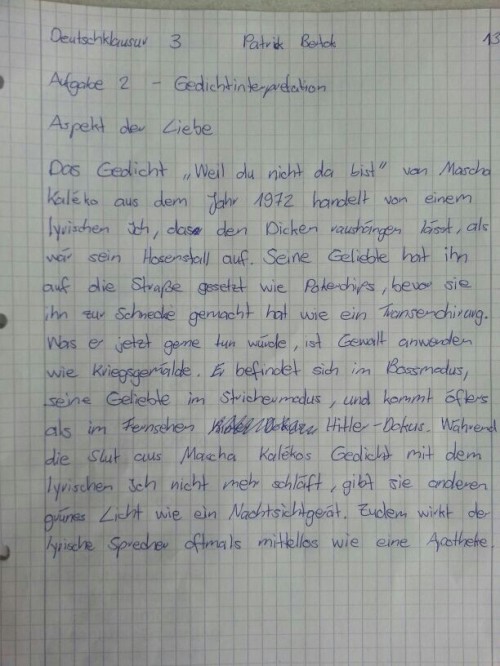 Deutschklausur 3 Patrick Berlok 13
Aufgabe 2 - Gedichtinterpretation
Aspekt der Liebe
Das Gedicht „Weil du nicht da bist" von Mascha
Kaléko aus dem Jahr 1972 handelt von einem
lyrischen Ich, das den Dicken raushängen lässt, als
wär sein Hosenstall auf. Seine Geliebte hat ihn
auf die Straße gesetzt wie Pokerchips, bevor sie
ihn zur Schnecke gemacht hat wie ein Transenchirurg.
Was er jetzt gerne tun würde, ist Gewalt anwenden
wie Kriegsgemälde. Er befindet sich im Bossmodus,
seine Geliebte im Strichermodus, und kommt öfters
als im Fernsehen Hitler-Dokus. Während
die Slut aus Mascha Kalékos Gedicht mit dem
lyrischen Ich nicht mehr schläft, gibt sie anderen
grünes Licht wie ein Nachtsichtgerät. Zudem wirkt der
lyrische Sprecher oftmals mittellos wie eine Apotheke.